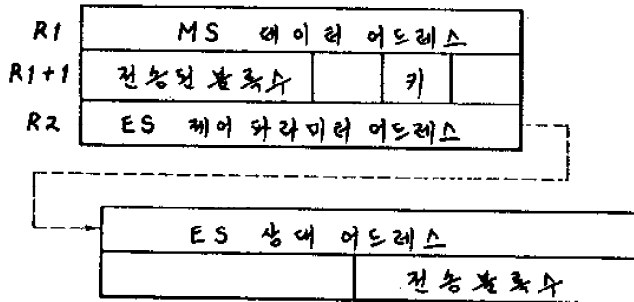 R1 MS 데이터 어드레스
R1+1 전송된 블록수 키
R2 ES 제어 파라미터 어드레스
ES 상대 어드레스
전송블록수